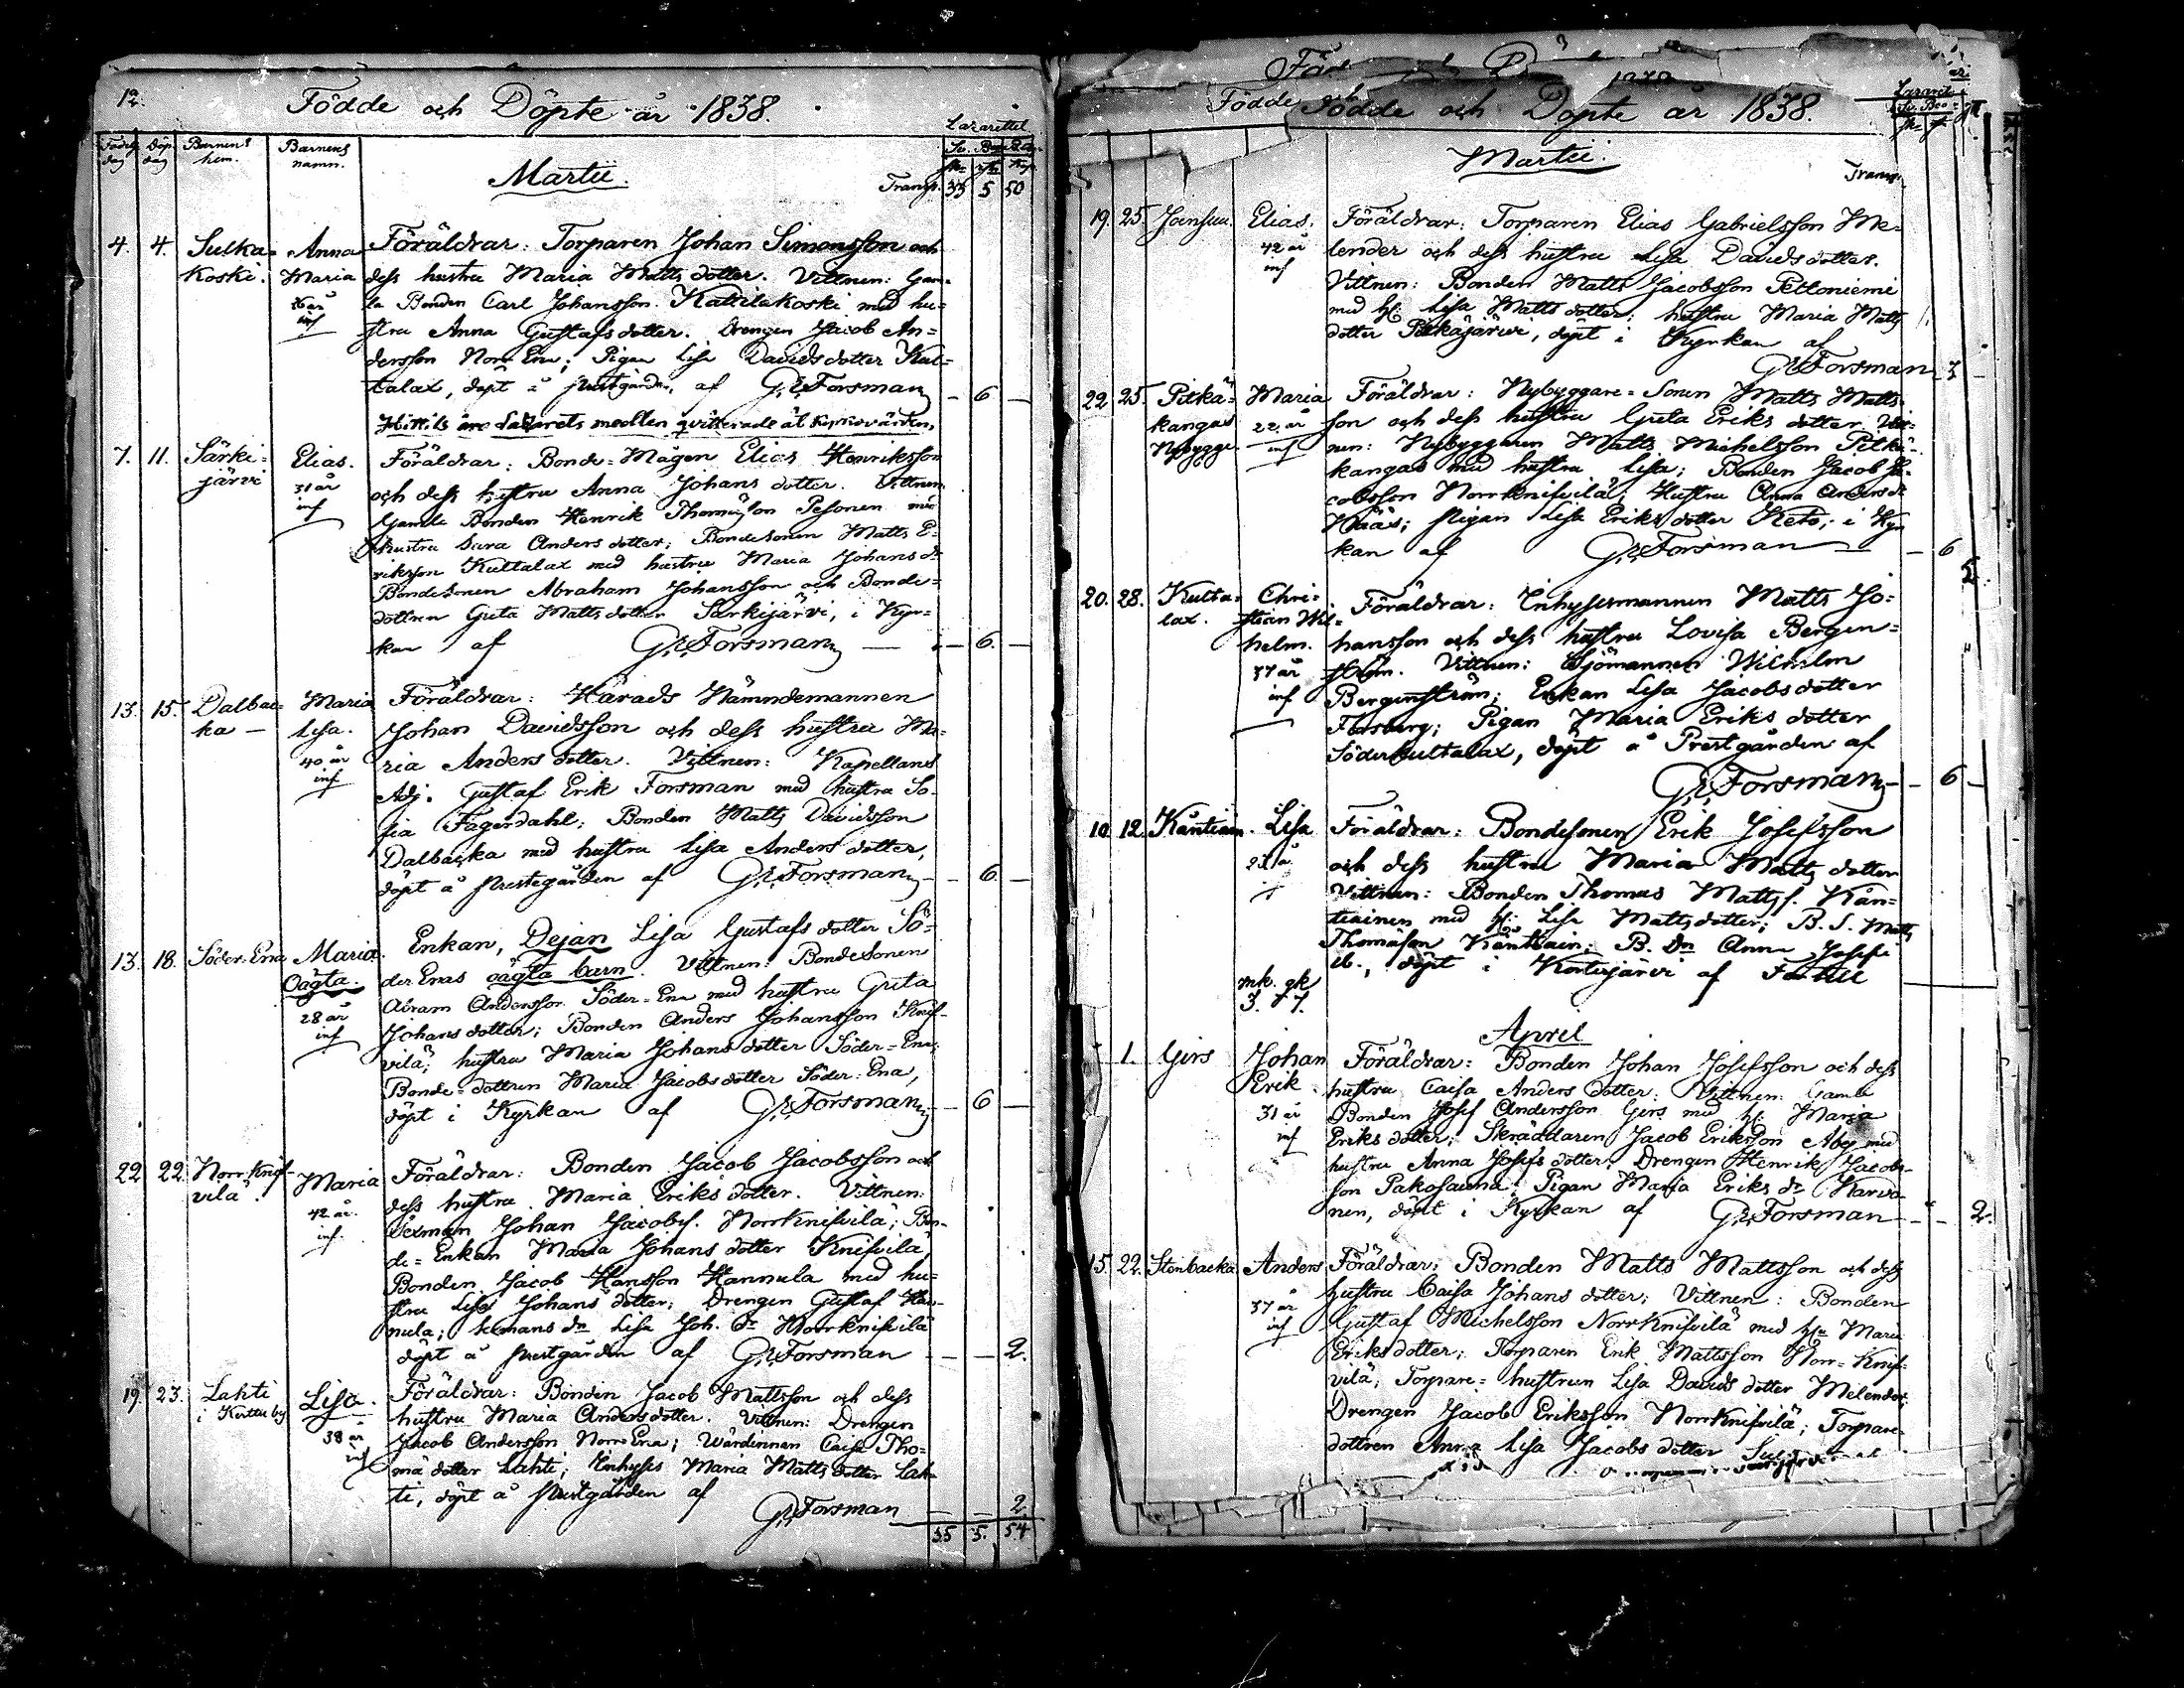 12.
Födde och Döpte år 1838.
Lazarettet
Födelse dag
Döp. dag
Barnens hem.
Barnens namn.
Martii.
Transp. 33 5 50
4. 4. Sulka=
koski.
Anna
Maria
inf
Föräldrar: Torparen Johan Simonsson och
dess hustru Maria Matts dotter. Vittnen: Gam=
la Bonden Carl Johansson Kattilakoski med hu=
stru Anna Gustafs dotter. Drengen Jacob An=
dersson Norr Ena; Pigan Lisa Davids dotter Kut=
talax, döpt å prestgården, af G.E. Forsman – 6 –
Hittils äro Lazarets medlen qvitterade åt kyrkovärden
7. 11. Särki=
järvi
Elias.
31 år
inf
Föräldrar: Bonde=Mågen Elias Henriksson
och dess hustru Anna Johans dotter. Vittnen
Gamla Bonden Henrik Thomasson Pesonen med
hustru Sara Anders dotter; Bondesonen Matts E=
riksson Kuttalax med hustru Maria Johans dr
Bondesonen Abraham Johansson och Bonde=
dottren Greta Matts dotter Särkijärvi, i Kyr=
kan af G.E. Forsman – 6. –
13. 15. Dalbac=
ka –
Maria
Lisa.
40 år
inf
Föräldrar: Härads Nämndemannen
Johan Davidsson och dess hustru Ma=
ria Anders dotter. Vittnen: Kapellans
Adj. Gustaf Erik Forsman med hustru So=
fia Fagerdahl; Bonden Matts Davidsson
Dalbacka med hustru Lisa Anders dotter,
döpt å prestegården af G.E. Forsman – 6 –
13. 18. Söder=Ena
Maria.
Oägta.
28 år
inf
Enkan, Dejan Lisa Gustafs dotter Sö=
der Enas oägta barn. Vittnen: Bondesonen
Abram Andersson Söder=Ena med hustru Greta
Johans dotter; Bonden Anders Johansson Knif=
vilä; hustru Maria Johans dotter Söder=Ena;
Bonde=dottren Maria Jacobs dotter Söder=Ena,
döpt i Kyrkan af G.E. Forsman – 6 –
22 22. Norr Knif=
vilä.
Maria
42 år.
inf.
Föräldrar: Bonden Jacob Jacobsson och
dess hustru Maria Eriks dotter. Vittnen:
Sexman Johan Jacobss. Norrknifvilä; Bon=
de=Enkan Maria Johans dotter Knifvilä,
Bonden Jacob Hansson Hannula med hu=
stru Lisa Johans dotter; Drengen Gustaf Han=
nula; Sexmans dn Lisa Joh. dr Norrknifvilä
döpt å prestgården af G.E. Forsman – – 2.
19. 23. Lahti
i Kerttu by
Lisa.
38 år
inf
Föräldrar: Bonden Jacob Mattsson och dess
hustru Maria Anders dotter. Vittnen: Drengen
Jacob Andersson Norr Ena; Wärdinnan Caisa Tho=
mä dotter Lahti; Inhyses Maria Matts dotter Lah=
ti, döpt å prestgården af
G.E. Forsman – – 2
35 5. 54
Födde och Döpte år 1838.
Lazaret
Martii.
Transp.
19. 25.
Elias.
42 år
inf
Föräldrar: Torparen Elias Gabrielsson Me=
lender och dess hustru Lisa Davids dotter.
Vittnen: Bonden Matts Jacobsson Peltoniemi
med h. Lisa Matts dotter; hustru Maria Matts
dotter Pitkäjärvi, döpt i Kyrkan af
G.E. Forsman 3
22 25. Pitkä=
kangas
Nybygge.
Maria
22 år
inf
Föräldrar: Nybyggare=Sonen Matts Matts
son och dess hustru Greta Eriks dotter. Vitt=
nen: Nybyggaren Matts Michelsson Pitkä=
kangas med hustru Lisa; Bonden Jacob Ja=
cobsson Norrknifvilä; Hustru Anna Anders dr
Nääs; Pigan Lisa Eriks dotter Keto; i Kyr
kan af G.E. Forsman – 6
20. 28. Kutta=
lax.
Chri=
stian Wil=
helm.
37 år
inf
Föräldrar: Inhysesmannen Matts Jo=
hansson och dess hustru Lovisa Bergen=
ström. Vittnen: Sjömannen Wilhelm
Bergenström; Enkan Lisa Jacobs dotter
Forsberg; Pigan Maria Eriks dotter
Söderkuttalax, döpt å Prestgården af
G.E. Forsman – 6 –
10 12. Käntäin.
Lisa
Föräldrar: Bondesonen Erik Josefsson
och dess hustru Maria Matts dotter
Vittnen: Bonden Thomas Mattss. Kän=
täinen med h: Lisa Matts dotter; B. S. Matts
Thomasson Käntäin; B. Dn Anna Josefs
d., döpt i Kortesjärvi af
mk. gk
3. 7.
April
1. Girs
Johan
Erik
31 år
inf
Föräldrar: Bonden Johan Josefsson och dess
hustru Caisa Anders dotter. Vittnen: Gamle
Bonden Josef Andersson Gers med h: Maria
Eriks dotter; Skräddaren Jacob Eriksson Åby med
hustru Anna Josefs dotter; Drengen Henrik Jacobs=
son Pakosauna; Pigan Maria Eriks dr Karvo=
nen, döpt i Kyrkan af G.E. Forsman – – 2.
15. 22. Stenbacka
Anders
37 år
inf
Föräldrar: Bonden Matts Mattsson och dess
hustru Caisa Johans dotter; Vittnen: Bonden
Gustaf Michelsson Norrknifvilä med h: Maria
Eriks dotter; Torparen Erik Mattsson Norr=Knif=
vilä; Torpare=hustrun Lisa Davids dotter Melender,
Drengen Jacob Eriksson Norrknifvilä; Torpare=
dottren Anna Lisa Jacobs dotter